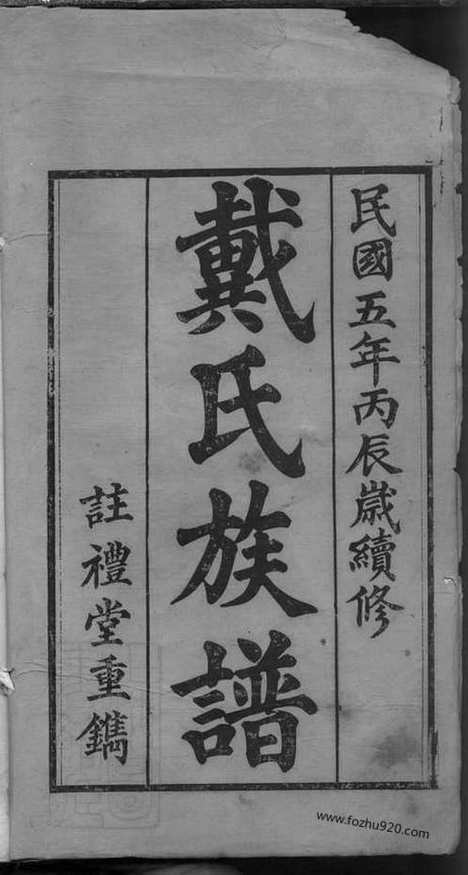 民國五年丙辰歲續修
戴氏族譜
註禮堂重鐫
www.fozhu920.com